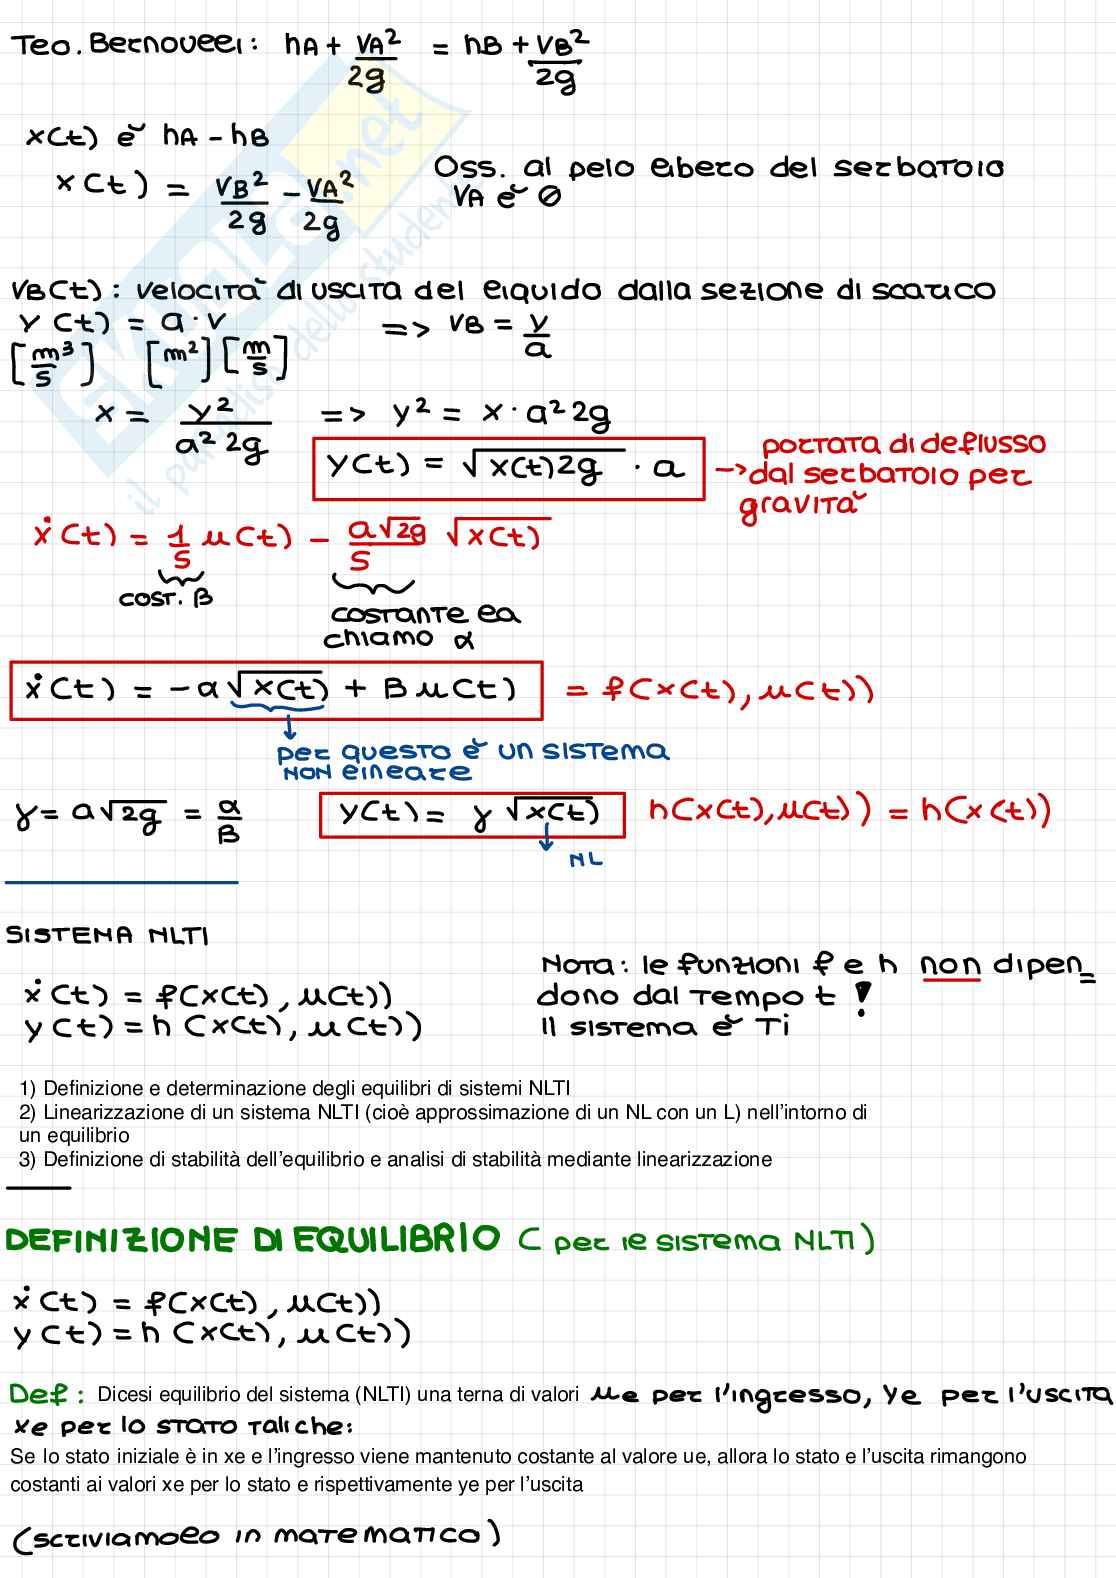 Teo. Bernoulli: hA + VA²/2g = hB + VB²/2g
x(t) è hA - hB
x(t) = VB²/2g - VA²/2g
Oss. al pelo libero del serbatoio
VA è 0
VB(t): velocità di uscita del liquido dalla sezione di scarico
y(t) = a · v => VB = y/a
[m³/s] [m²] [m/s]
x = y²/a² 2g => y² = x · a² 2g
y(t) = √x(t)2g · a
-> portata di deflusso
dal serbatoio per
gravità
ẋ(t) = 1/S u(t) - a√2g/S √x(t)
cost. β
costante la
chiamo α
ẋ(t) = -α√x(t) + β u(t) = f(x(t), u(t))
per questo è un sistema
NON lineare
γ = a√2g = α/β
y(t) = γ √x(t) h(x(t), u(t)) = h(x(t))
NL
SISTEMA NLTI
ẋ(t) = f(x(t), u(t))
y(t) = h(x(t), u(t))
Nota: le funzioni f e h non dipen=
dono dal tempo t !
Il sistema è Ti
1) Definizione e determinazione degli equilibri di sistemi NLTI
2) Linearizzazione di un sistema NLTI (cioè approssimazione di un NL con un L) nell'intorno di
un equilibrio
3) Definizione di stabilità dell'equilibrio e analisi di stabilità mediante linearizzazione
DEFINIZIONE DI EQUILIBRIO (per il sistema NLTI)
ẋ(t) = f(x(t), u(t))
y(t) = h(x(t), u(t))
Def: Dicesi equilibrio del sistema (NLTI) una terna di valori ue per l'ingresso, ye per l'uscita
xe per lo stato tali che:
Se lo stato iniziale è in xe e l'ingresso viene mantenuto costante al valore ue, allora lo stato e l'uscita rimangono
costanti ai valori xe per lo stato e rispettivamente ye per l'uscita
(scriviamolo in matematico)